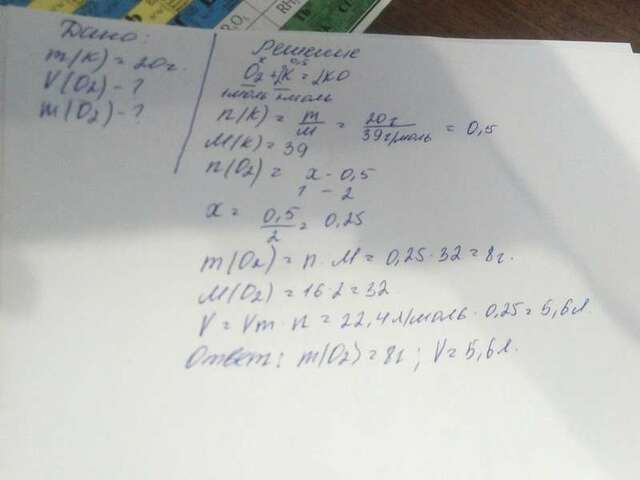 Дано:
m(K) = 20г.
V(O₂) - ?
m(O₂) - ?
Решение
x 0,5
O₂ + 2K = 2KO
1моль 2моль
n(K) = m/M = 20г/39г/моль = 0,5
M(K) = 39
n(O₂) = x - 0,5
1 - 2
x = 0,5/2 = 0,25
m(O₂) = n · M = 0,25 · 32 = 8г.
M(O₂) = 16·2 = 32
V = Vm · n = 22,4л/моль · 0,25 = 5,6л.
Ответ: m(O₂) = 8г; V = 5,6л.